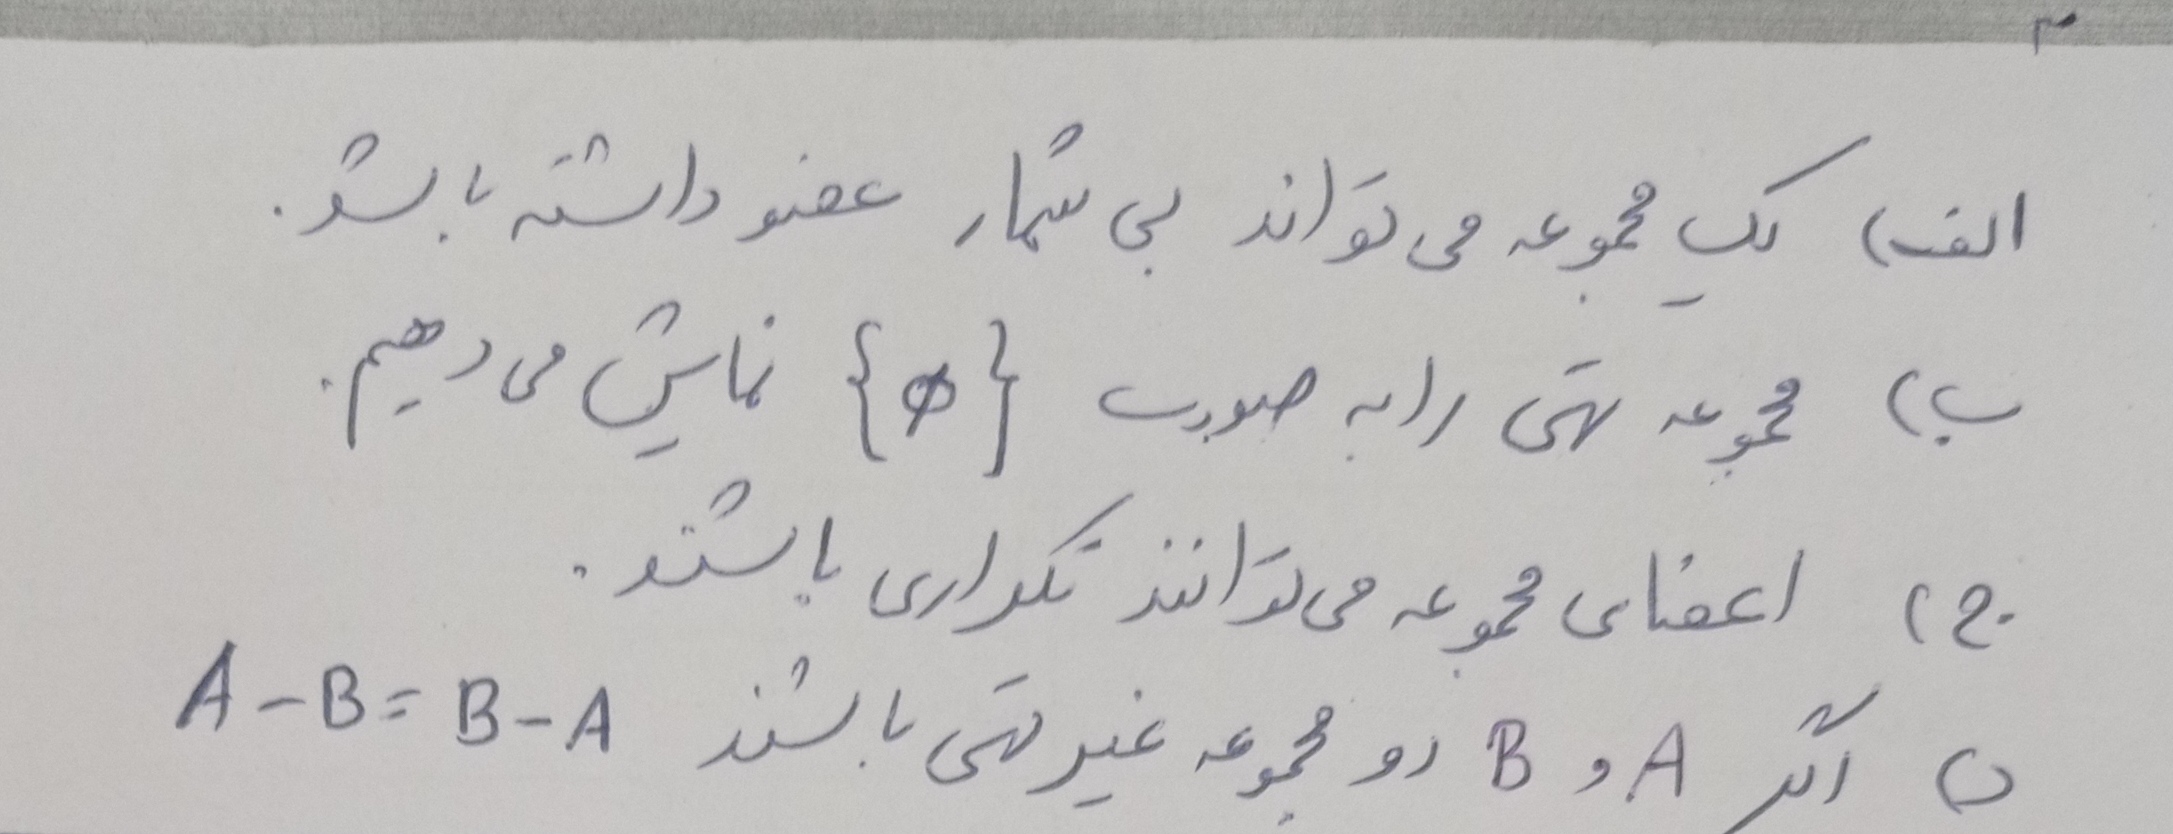 الف) یک مجموعه می تواند بی شمار عضو داشته باشد.
ب) مجموعه تهی را به صورت {∅} نمایش می دهیم.
ج) اعضای مجموعه می توانند تکراری باشند.
د) اگر A و B دو مجموعه غیر تهی باشند A - B = B - A